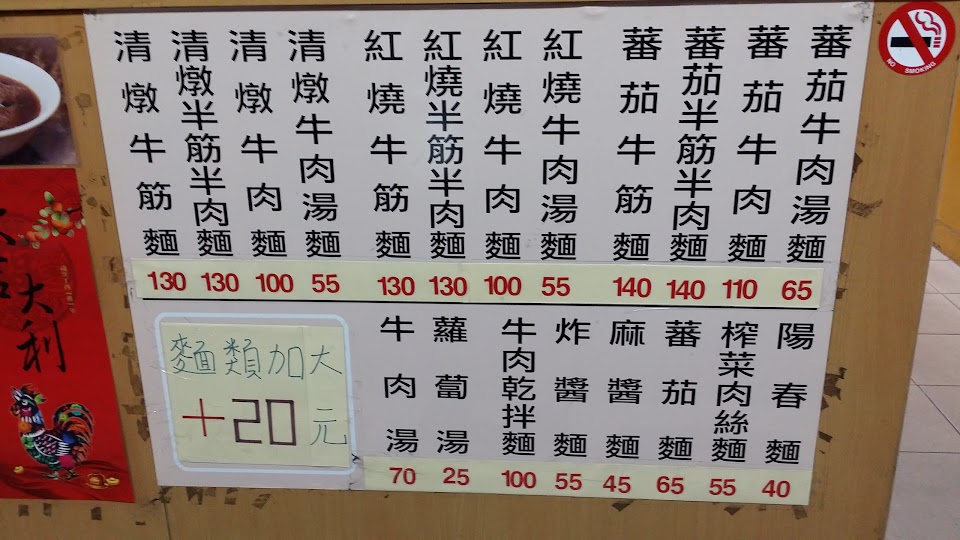 清燉牛筋麵
清燉半筋半肉麵
清燉牛肉麵
清燉牛肉湯麵
紅燒牛筋麵
紅燒半筋半肉麵
紅燒牛肉麵
紅燒牛肉湯麵
蕃茄牛筋麵
蕃茄半筋半肉麵
蕃茄牛肉麵
蕃茄牛肉湯麵
130 130 100 55 130 130 100 55 140 140 110 65
麵類加大
+20元
牛肉湯
蘿蔔湯
牛肉乾拌麵
炸醬麵
麻醬麵
蕃茄麵
榨菜肉絲麵
陽春麵
70 25 100 55 45 65 55 40
大利
NO SMOKING